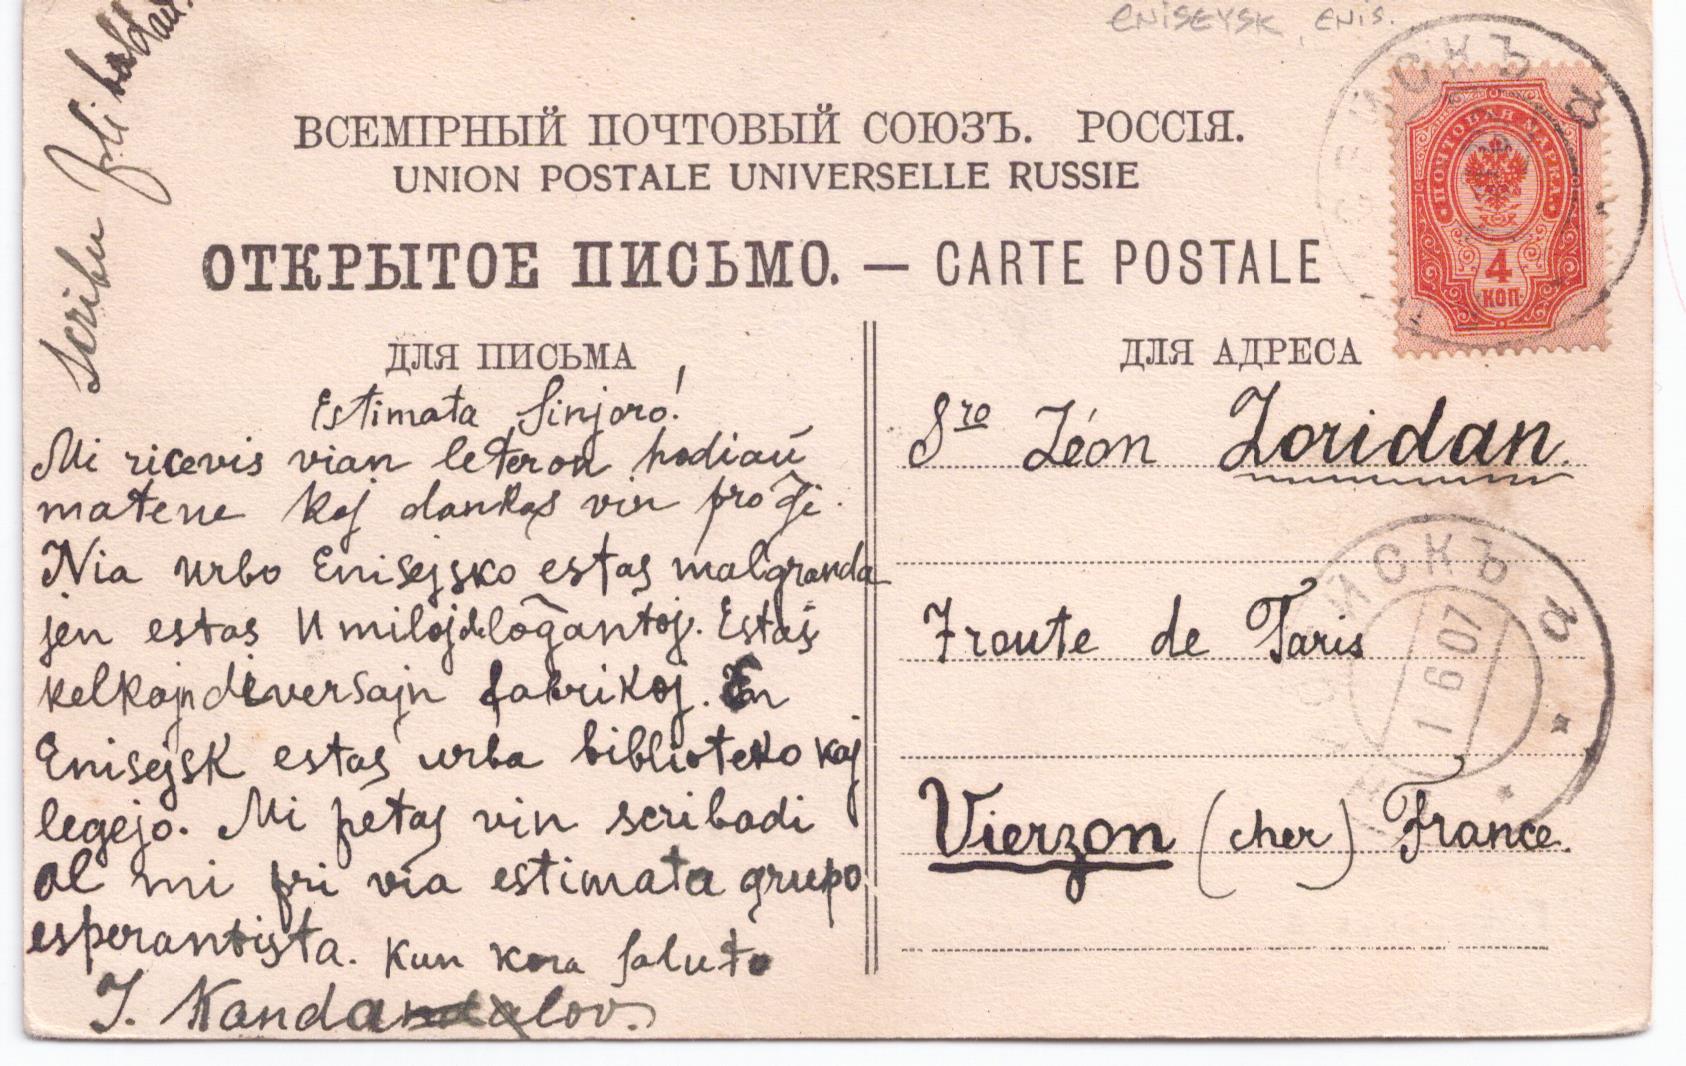 ENISEYSK, ENIS.
ВСЕМІРНЫЙ ПОЧТОВЫЙ СОЮЗЪ. РОССІЯ.
UNION POSTALE UNIVERSELLE RUSSIE
ОТКРЫТОЕ ПИСЬМО. — CARTE POSTALE
ПОЧТОВАЯ МАРКА
4
КОП.
ДЛЯ ПИСЬМА
Estimata Sinjoro!
Mi ricevis vian leteron hodiaŭ
matene kaj dankas vin pro ĝi.
Nia urbo Enisejsko estas malgranda
jen estas 11 miloj da loĝantoj. Estas
kelkajn diversajn fabrikoj. En
Enisejsk estas urba biblioteko kaj
legejo. Mi petas vin scribadi
al mi pri via estimata grupo
esperantista. Kun kora saluto
J. Kandalov.
Scribu pli baldau.
ДЛЯ АДРЕСА
Sro Léon Loridan
1 6 07
Froute de Paris
Vierzon (cher) France.